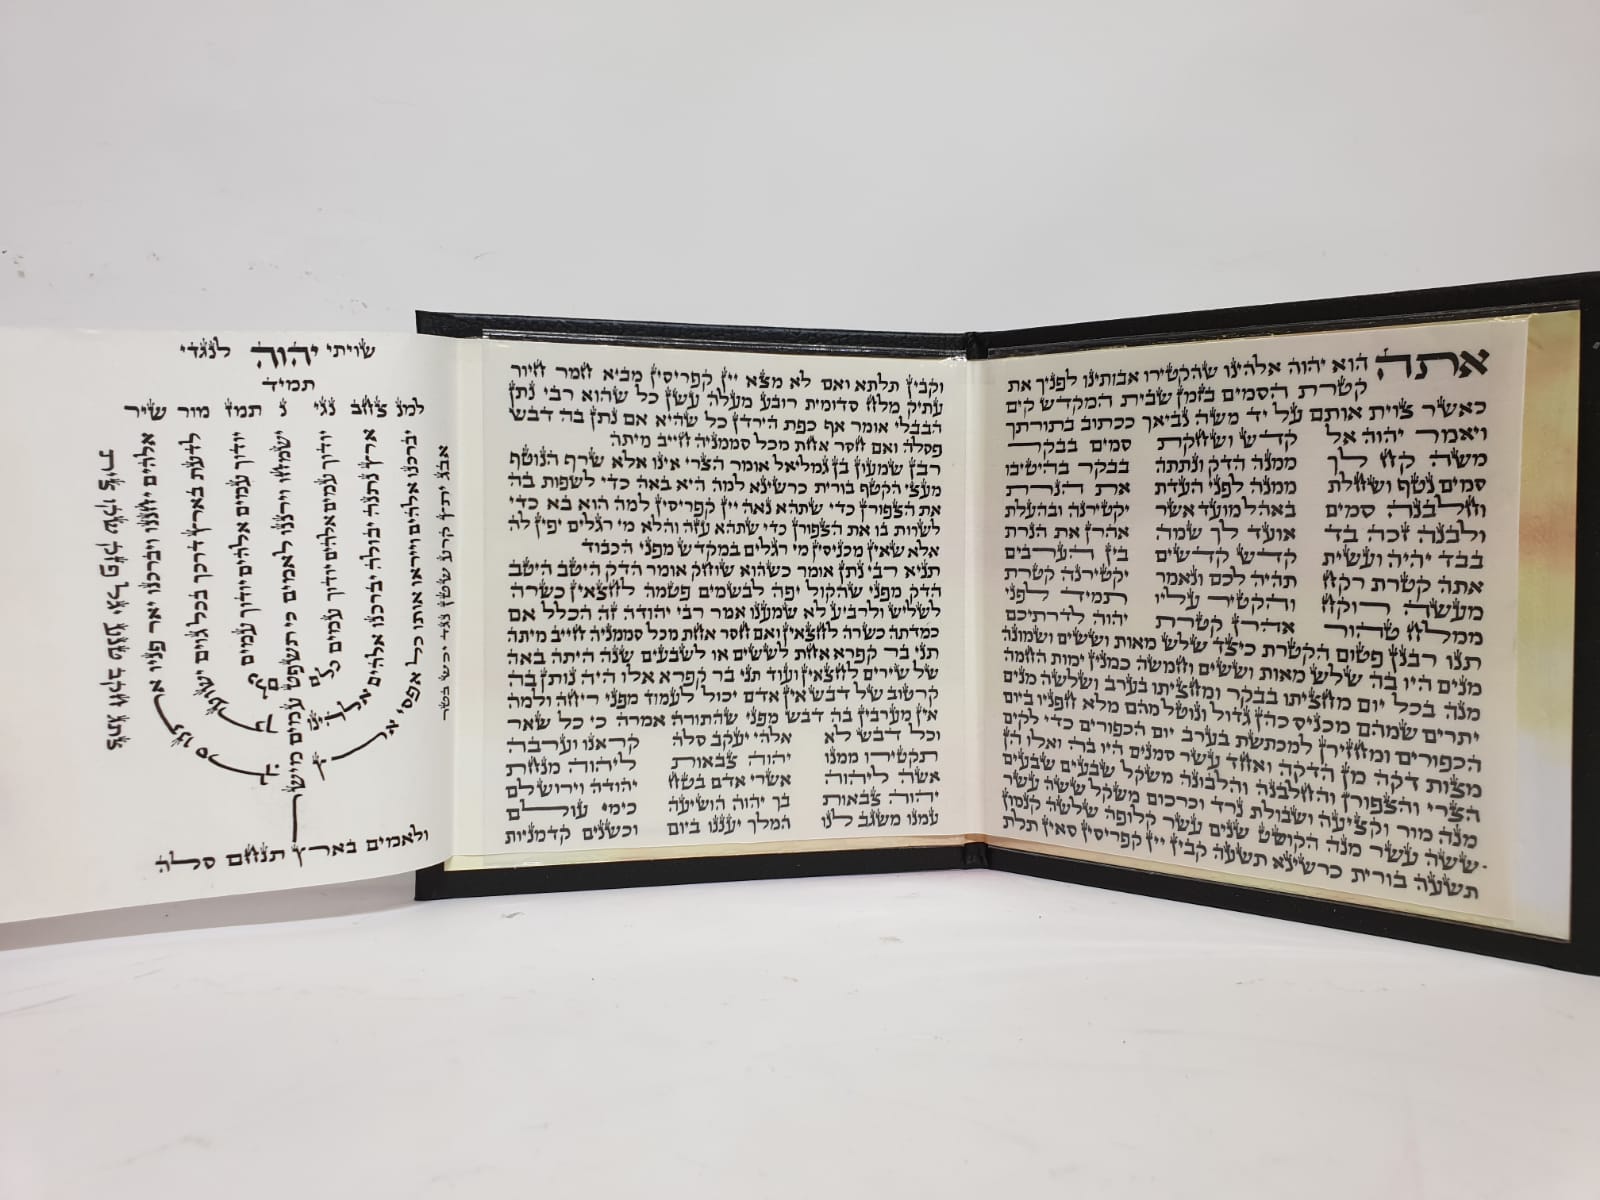 אתה הוא יהוה אלהינו שהקטירו אבותינו לפניך את
קטרת הסמים בזמן שבית המקדש קים
כאשר צוית אותם על יד משה נביאך ככתוב בתורתך
ויאמר יהוה אל
משה קח לך
סמים נטף ושחלת
וחלבנה סמים
ולבנה זכה בד
בבד יהיה ועשית
אתה קטרת רקח
מעשה רוקח
ממלח טהור
קדש ושחקת
ממנה הדק ונתתה
ממנה לפני העדת
באהל מועד אשר
אועד לך שמה
קדש קדשים
תהיה לכם ונאמר
והקטיר עליו
אהרן קטרת
סמים בבקר
בבקר בהיטיבו
את הנרת
יקטירנה ובהעלת
אהרן את הנרת
בין הערבים
יקטירנה קטרת
תמיד לפני
יהוה לדרתיכם
תנו רבנן פטום הקטרת כיצד שלש מאות וששים ושמונה
מנים היו בה שלש מאות וששים וחמשה כמנין ימות החמה
מנה בכל יום מחציתו בבקר ומחציתו בערב ושלשה מנים
יתרים שמהם מכניס כהן גדול ונוטל מהם מלא חפניו ביום
הכפורים ומחזירן למכתשת בערב יום הכפורים כדי לקים
מצות דקה מן הדקה ואחד עשר סמנים היו בה ואלו הן
הצרי והצפורן והחלבנה והלבונה משקל שבעים שבעים
מנה מור וקציעה ושבולת נרד וכרכום משקל ששה עשר
ששה עשר מנה הקושט שנים עשר קלופה שלשה קנמון
תשעה בורית כרשינא תשעה קבין יין קפריסין סאין תלת
וקבין תלתא ואם לא מצא יין קפריסין מביא חמר חיור
עתיק מלח סדומית רובע מעלה עשן כל שהוא רבי נתן
הבבלי אומר אף כפת הירדן כל שהיא אם נתן בה דבש
פסלה ואם חסר אחת מכל סממניה חייב מיתה
רבן שמעון בן גמליאל אומר הצרי אינו אלא שרף הנוטף
מעצי הקטף בורית כרשינא למה היא באה כדי לשפות בה
את הצפורן כדי שתהא נאה יין קפריסין למה הוא בא כדי
לשרות בו את הצפורן כדי שתהא עזה והלא מי רגלים יפין לה
אלא שאין מכניסין מי רגלים במקדש מפני הכבוד
תניא רבי נתן אומר כשהוא שוחק אומר הדק היטב היטב
הדק מפני שהקול יפה לבשמים פטמה לחצאין כשרה
לשליש ולרביע לא שמענו אמר רבי יהודה זה הכלל אם
כמדתה כשרה לחצאין ואם חסר אחת מכל סממניה חייב מיתה
תני בר קפרא אחת לששים או לשבעים שנה היתה באה
של שירים לחצאין ועוד תני בר קפרא אלו היה נותן בה
קרטוב של דבש אין אדם יכול לעמוד מפני ריחה ולמה
אין מערבין בה דבש מפני שהתורה אמרה כי כל שאר
וכל דבש לא
תקטירו ממנו
אשה ליהוה
יהוה צבאות
עמנו משגב לנו
אלהי יעקב סלה
יהוה צבאות
אשרי אדם בטח
בך יהוה הושיעה
המלך יעננו ביום
קראנו וערבה
ליהוה מנחת
יהודה וירושלם
כימי עולם
וכשנים קדמניות
שויתי יהוה לנגדי
תמיד
למנ צחב נגי נ תמז מור שיר
יברכנו אלהים וייראו אותו כל אפסי אר ץ
ארץ נתנה יבולה יברכנו אלהים אל
יודוך עמים אלהים יודוך עמים
ישמחו וירננו לאמים כי תשפט עמים מישר
יודוך עמים אלהים יודוך עמים
לדעת בארץ דרכך בכל גוים ישוע
אלהים יחננו ויברכנו יאר פניו א
אבג יתץ קרע שטן נגד יכש בטר
צתג חקב טנע יגל פזק שקו צית
ולאמים בארץ תנחם סלה